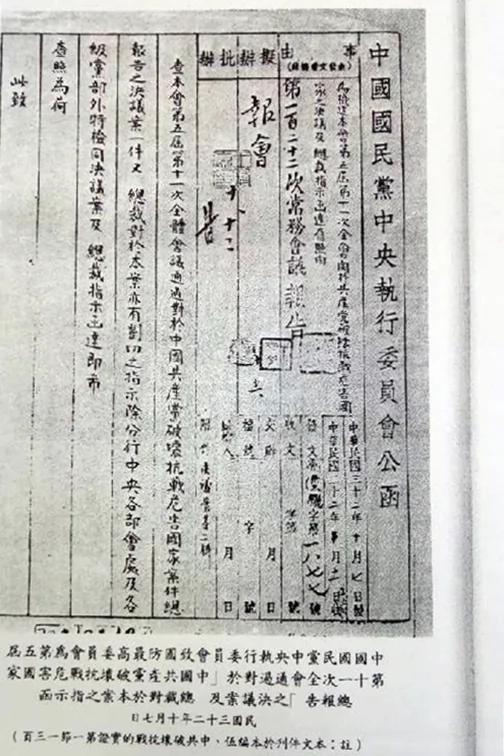 中國國民黨中央執行委員會公函
事由
擬辦
批辦
第一百二十二次常務會議報告
報會
十、十二
中華民國三十二年十月七日
中華民國三十二年 月 日
字第一八七七號
收文 字第 號
交辦 月 日
編號 字 號
月 日
查本會第五屆第十一次全體會議通過對於中國共產黨破壞抗戰危害國家案件總
報告之決議案一件又 總裁對於本案亦有剴切之指示除分行中央各部會處及各
級黨部外特檢同決議案及 總裁指示函達即希
查照為荷
此致
中國國民黨中央執行委員會致國防最高委員會為第五屆
第十一次全會通過對於「中國共產黨破壞抗戰危害國家
總報告」之決議案及 總裁對於本案之指示函
民國三十二年十月七日
(註:本文件列於本編伍、中共破壞抗戰的實證第一節一三百)